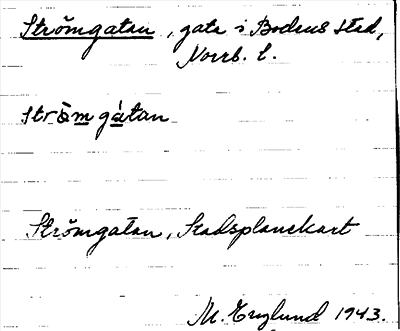 Strömgatan, gata i Bodens stad,
Norrb. l.
Strömgátan
Strömgatan, Stadsplanekart
M. Englund 1943.